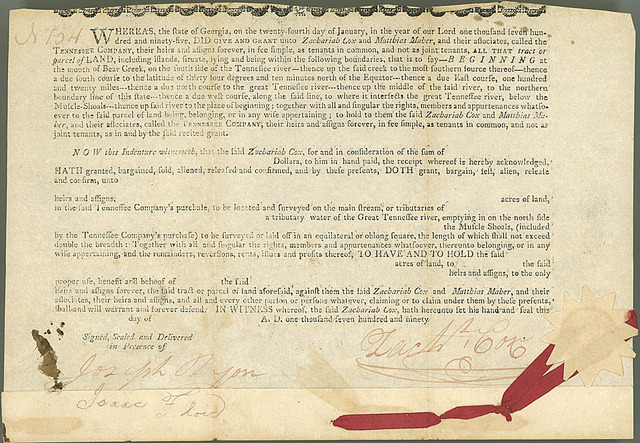 No 734
WHEREAS, the state of Georgia, on the twenty-fourth day of January, in the year of our Lord one thousand seven hun-
dred and ninety-five, DID GIVE AND GRANT unto Zachariah Cox and Matthias Maher, and their associates, called the
TENNESSEE COMPANY, their heirs and assigns forever, in fee simple, as tenants in common, and not as joint tenants, ALL THAT tract or
parcel of LAND, including islands, situate, lying and being within the following boundaries, that is to say—BEGINNING at
the mouth of Bear Creek, on the south side of the Tennessee river—thence up the said creek to the most southern source thereof—thence
a due south course to the latitude of thirty four degrees and ten minutes north of the Equator—thence a due East course, one hundred
and twenty miles—thence a due north course to the great Tennessee river—thence up the middle of the said river, to the northern
boundary line of this state—thence a due west course, along the said line, to where it intersects the great Tennessee river, below the
Muscle Shoals—thence up said river to the place of beginning; together with all and singular the rights, members and appurtenances whatso-
ever to the said parcel of land being, belonging, or in any wise appertaining; to hold them the said Zachariah Cox and Matthias Ma-
her, and their associates, called the TENNESSEE COMPANY, their heirs and assigns forever, in fee simple, as tenants in common, and not as
joint tenants, as in and by the said recited grant.
NOW this Indenture witnesseth, that the said Zachariah Cox, for and in consideration of the sum of
Dollars, to him in hand paid, the receipt whereof is hereby acknowledged,
HATH granted, bargained, sold, aliened, released and confirmed, and by these presents, DOTH grant, bargain, sell, alien, release
and confirm, unto
heirs and assigns, acres of land,
in the said Tennessee Company's purchase, to be located and surveyed on the main stream, or tributaries of
a tributary water of the Great Tennessee river, emptying in on the north side
the Muscle Shoals, (included
by the Tennessee Company's purchase) to be surveyed or laid off in an equilateral or oblong square, the length of which shall not exceed
double the breadth: Together with all and singular the rights, members and appurtenances whatsoever, thereunto belonging, or in any
wise appertaining, and the remainders, reversions, rents, issues and profits thereof, TO HAVE AND TO HOLD the said
acres of land, to the said
heirs and assigns, to the only
proper use, benefit and behoof of the said
heirs and assigns forever, the said tract or parcel of land aforesaid, against them the said Zachariah Cox and Matthias Maher, and their
associates, their heirs and assigns, and all and every other person or persons whatever, claiming or to claim under them by these presents,
shall and will warrant and forever defend. IN WITNESS whereof, the said Zachariah Cox, hath hereunto set his hand and seal this
day of A. D. one thousand seven hundred and ninety.
Signed, Sealed and Delivered
in Presence of
Zachh Cox
Joseph Ryon
Isaac Floid